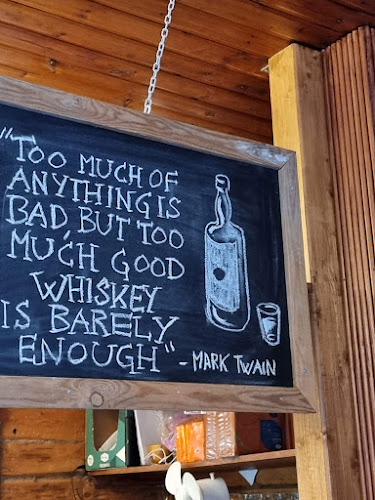 "TOO MUCH OF
ANYTHING IS
BAD, BUT TOO
MUCH GOOD
WHISKEY
IS BARELY
ENOUGH" - MARK TWAIN